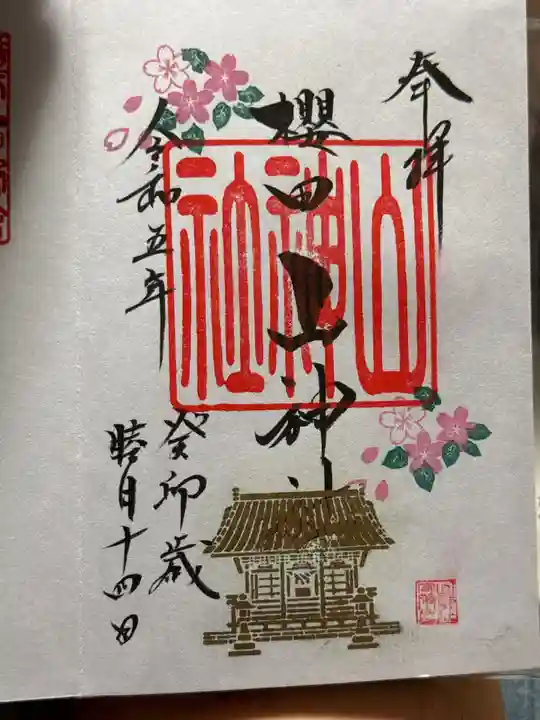 奉拝
櫻田山神社
山神社
令和五年
癸卯歳
睦月十四日